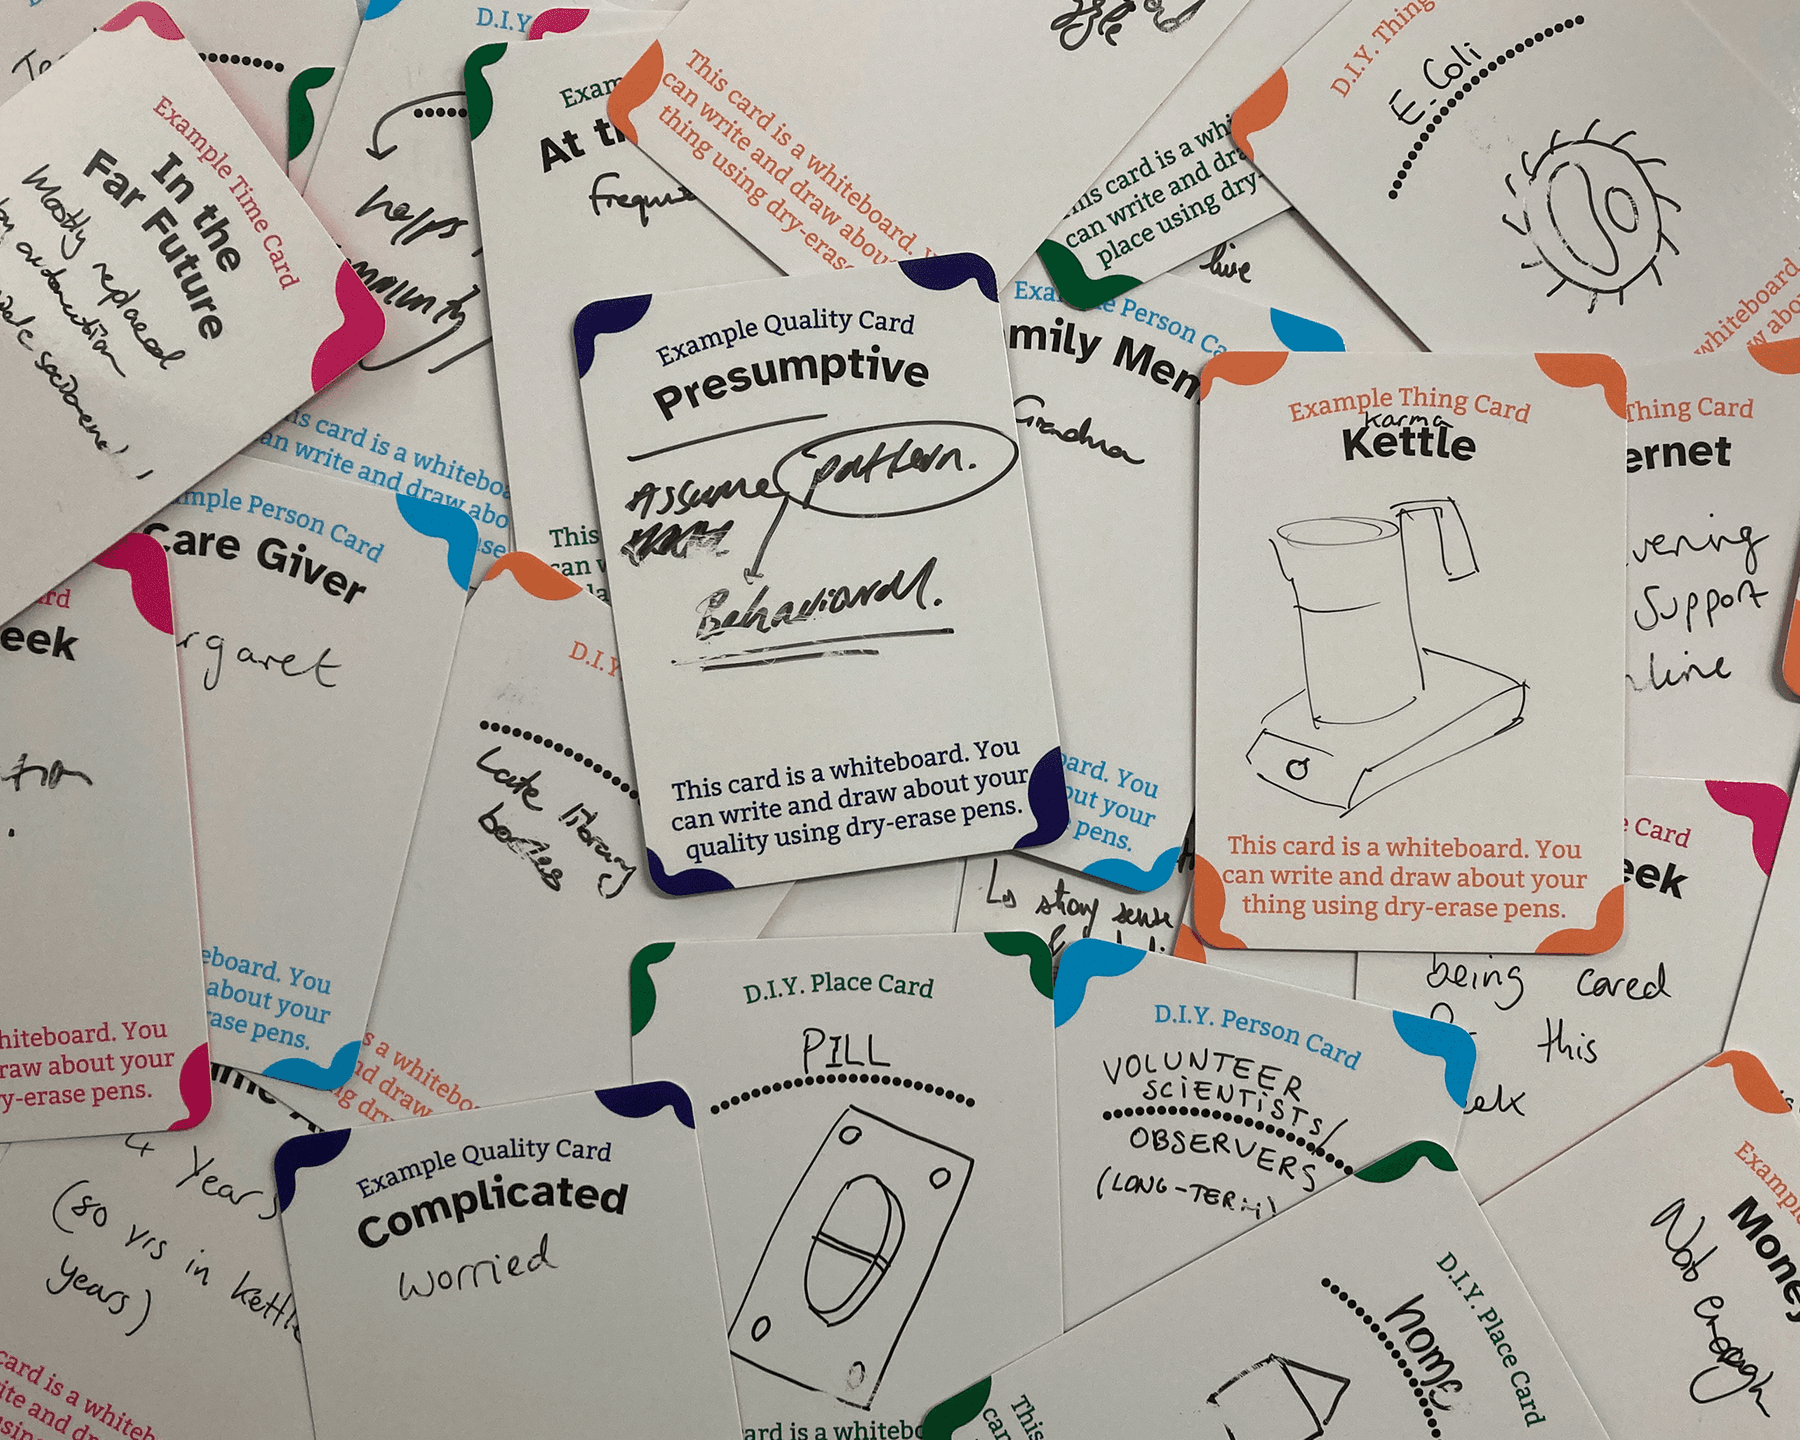 D.I.Y.
Example Time Card
In the
Far Future
Mostly replaced
by automation
Exam
At th
Freque
This card is a whiteboard.
can write and draw about
thing using dry-erase
This card is a whi
can write and dra
place using dry-
live
D.I.Y. Thing
E. Coli
whiteboard.
w abo
his card is a whiteboa
an write and draw abo
ase
This
can w
Example Quality Card
Presumptive
Assume pattern.
Behavioural.
This card is a whiteboard. You
can write and draw about your
quality using dry-erase pens.
Example Person Ca
mily Mem
Grandma
ard. You
out your
pens.
Example Thing Card
karma
Kettle
This card is a whiteboard. You
can write and draw about your
thing using dry-erase pens.
Thing Card
ernet
vening
Support
nline
mple Person Card
Care Giver
rgaret
eboard. You
about your
ase pens.
rd
eek
hiteboard. You
raw about your
y-erase pens.
D.I.Y.
Late library
s a whiteboa
nd draw
ng dry
strong sense
Card
eek
being cared
this
D.I.Y. Place Card
PILL
ard is a whitebo
D.I.Y. Person Card
VOLUNTEER
SCIENTISTS/
OBSERVERS
(LONG-TERM)
4 Years
(80 yrs in kettle
years)
card is a whiteb
ite and dr
Example Quality Card
Complicated
worried
D.I.Y. Place Card
home
This
can
Example
Money
Not enough